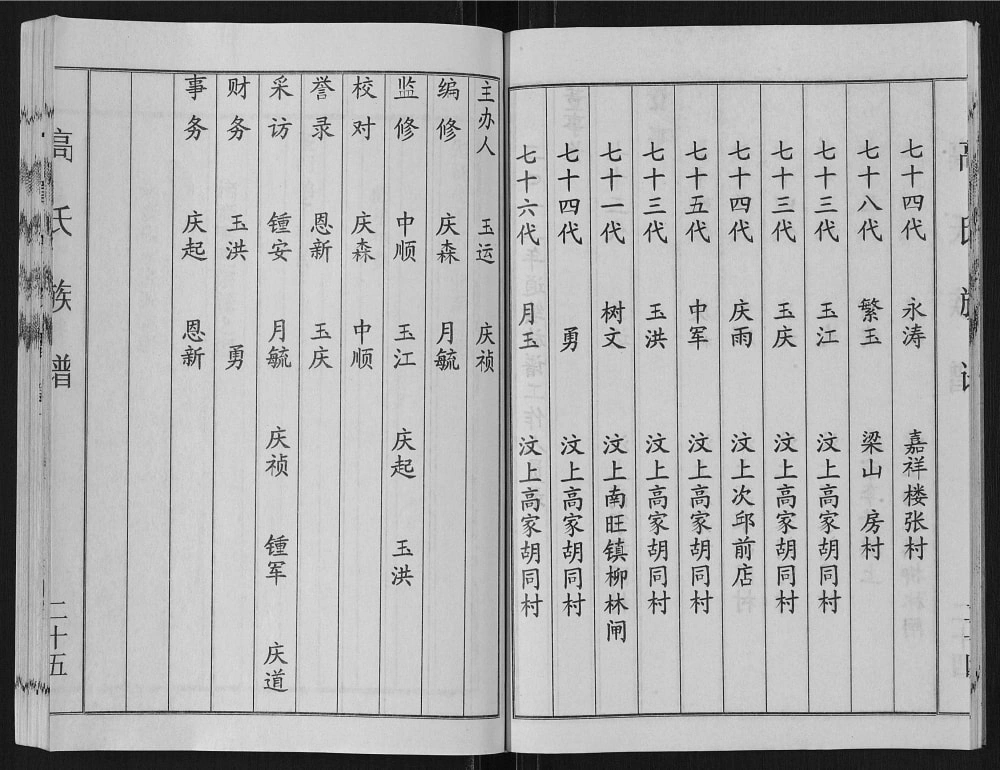 七十四代 永涛 嘉祥楼张村
七十八代 繁玉 梁山 房村
七十三代 玉江 汶上高家胡同村
七十三代 玉庆 汶上高家胡同村
七十四代 庆雨 汶上次邱前店村
七十五代 中军 汶上高家胡同村
七十三代 玉洪 汶上高家胡同村
七十一代 树文 汶上南旺镇柳林闸
七十四代 勇 汶上高家胡同村
七十六代 月玉 汶上高家胡同村
主办人 玉运 庆祯
编修 庆森 月毓
监修 中顺 玉江 庆起 玉洪
校对 庆森 中顺
誉录 恩新 玉庆
采访 锺安 月毓 庆祯 锺军 庆道
财务 玉洪 勇
事务 庆起 恩新
高氏族谱 二十五